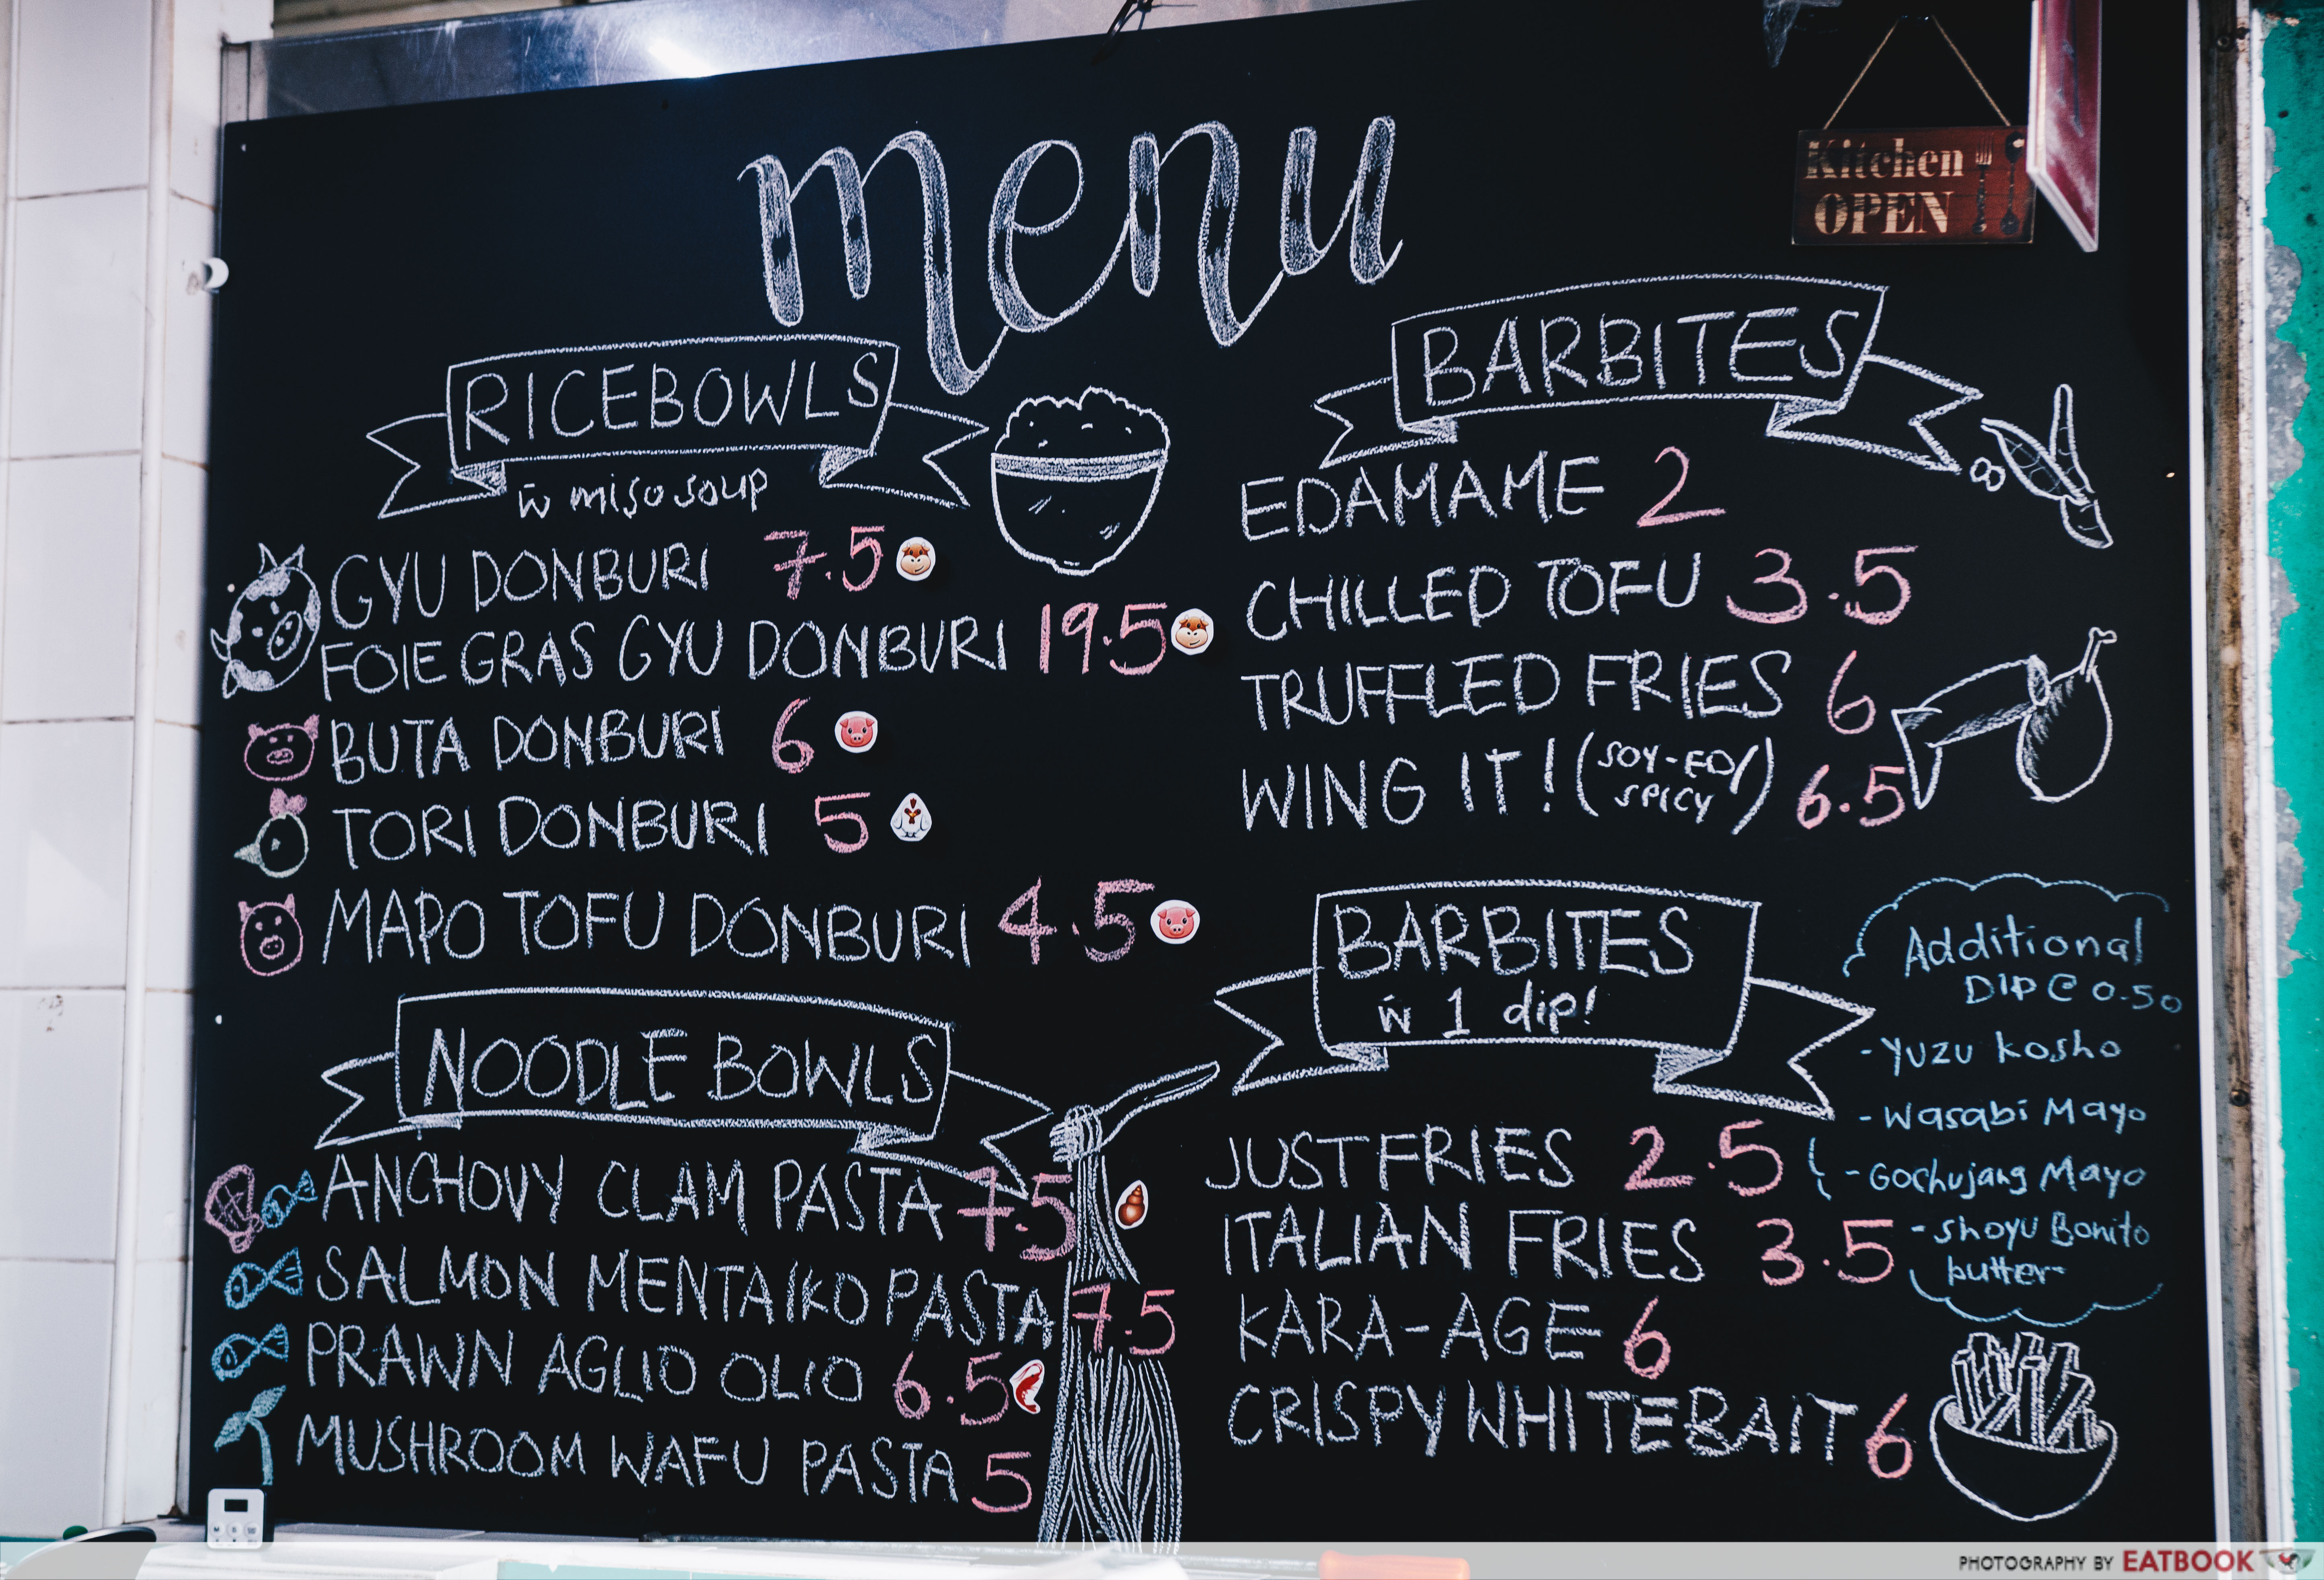 menu
Kitchen
OPEN
RICEBOWLS
w̄ miso soup
GYU DONBURI 7.5
FOIE GRAS GYU DONBURI 19.5
BUTA DONBURI 6
TORI DONBURI 5
MAPO TOFU DONBURI 4.5
NOODLE BOWLS
ANCHOVY CLAM PASTA 7.5
SALMON MENTAIKO PASTA 7.5
PRAWN AGLIO OLIO 6.5
MUSHROOM WAFU PASTA 5
BARBITES
EDAMAME 2
CHILLED TOFU 3.5
TRUFFLED FRIES 6
WING IT! (SOY-ED/
SPICY) 6.5
BARBITES
w̄ 1 dip!
JUST FRIES 2.5
ITALIAN FRIES 3.5
KARA-AGE 6
CRISPY WHITEBAIT 6
Additional
DIP @ 0.50
- Yuzu kosho
- Wasabi Mayo
- Gochujang Mayo
- Shoyu Bonito
butter
PHOTOGRAPHY BY EATBOOK